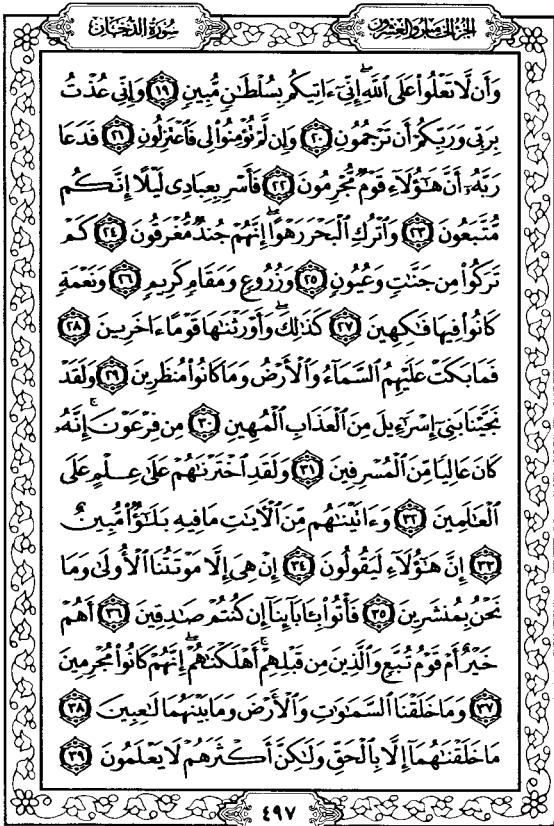 الجزء الخامس والعشرون
سورة الدخان
وَأَن لَّا تَعْلُوا۟ عَلَى ٱللَّهِ ۖ إِنِّىٓ ءَاتِيكُم بِسُلْطَٰنٍ مُّبِينٍ ۝١٩ وَإِنِّى عُذْتُ
بِرَبِّى وَرَبِّكُمْ أَن تَرْجُمُونِ ۝٢٠ وَإِن لَّمْ تُؤْمِنُوا۟ لِى فَٱعْتَزِلُونِ ۝٢١ فَدَعَا
رَبَّهُۥٓ أَنَّ هَٰٓؤُلَآءِ قَوْمٌ مُّجْرِمُونَ ۝٢٢ فَأَسْرِ بِعِبَادِى لَيْلًا إِنَّكُم
مُّتَّبَعُونَ ۝٢٣ وَٱتْرُكِ ٱلْبَحْرَ رَهْوًا ۖ إِنَّهُمْ جُندٌ مُّغْرَقُونَ ۝٢٤ كَمْ
تَرَكُوا۟ مِن جَنَّٰتٍ وَعُيُونٍ ۝٢٥ وَزُرُوعٍ وَمَقَامٍ كَرِيمٍ ۝٢٦ وَنَعْمَةٍ
كَانُوا۟ فِيهَا فَٰكِهِينَ ۝٢٧ كَذَٰلِكَ ۖ وَأَوْرَثْنَٰهَا قَوْمًا ءَاخَرِينَ ۝٢٨
فَمَا بَكَتْ عَلَيْهِمُ ٱلسَّمَآءُ وَٱلْأَرْضُ وَمَا كَانُوا۟ مُنظَرِينَ ۝٢٩ وَلَقَدْ
نَجَّيْنَا بَنِىٓ إِسْرَٰٓءِيلَ مِنَ ٱلْعَذَابِ ٱلْمُهِينِ ۝٣٠ مِن فِرْعَوْنَ ۚ إِنَّهُۥ
كَانَ عَالِيًا مِّنَ ٱلْمُسْرِفِينَ ۝٣١ وَلَقَدِ ٱخْتَرْنَٰهُمْ عَلَىٰ عِلْمٍ عَلَى
ٱلْعَٰلَمِينَ ۝٣٢ وَءَاتَيْنَٰهُم مِّنَ ٱلْءَايَٰتِ مَا فِيهِ بَلَٰٓؤٌا۟ مُّبِينٌ
۝٣٣ إِنَّ هَٰٓؤُلَآءِ لَيَقُولُونَ ۝٣٤ إِنْ هِىَ إِلَّا مَوْتَتُنَا ٱلْأُولَىٰ وَمَا
نَحْنُ بِمُنشَرِينَ ۝٣٥ فَأْتُوا۟ بِـَٔابَآئِنَآ إِن كُنتُمْ صَٰدِقِينَ ۝٣٦ أَهُمْ
خَيْرٌ أَمْ قَوْمُ تُبَّعٍ وَٱلَّذِينَ مِن قَبْلِهِمْ ۚ أَهْلَكْنَٰهُمْ ۖ إِنَّهُمْ كَانُوا۟ مُجْرِمِينَ
۝٣٧ وَمَا خَلَقْنَا ٱلسَّمَٰوَٰتِ وَٱلْأَرْضَ وَمَا بَيْنَهُمَا لَٰعِبِينَ ۝٣٨
مَا خَلَقْنَٰهُمَآ إِلَّا بِٱلْحَقِّ وَلَٰكِنَّ أَكْثَرَهُمْ لَا يَعْلَمُونَ ۝٣٩
٤٩٧